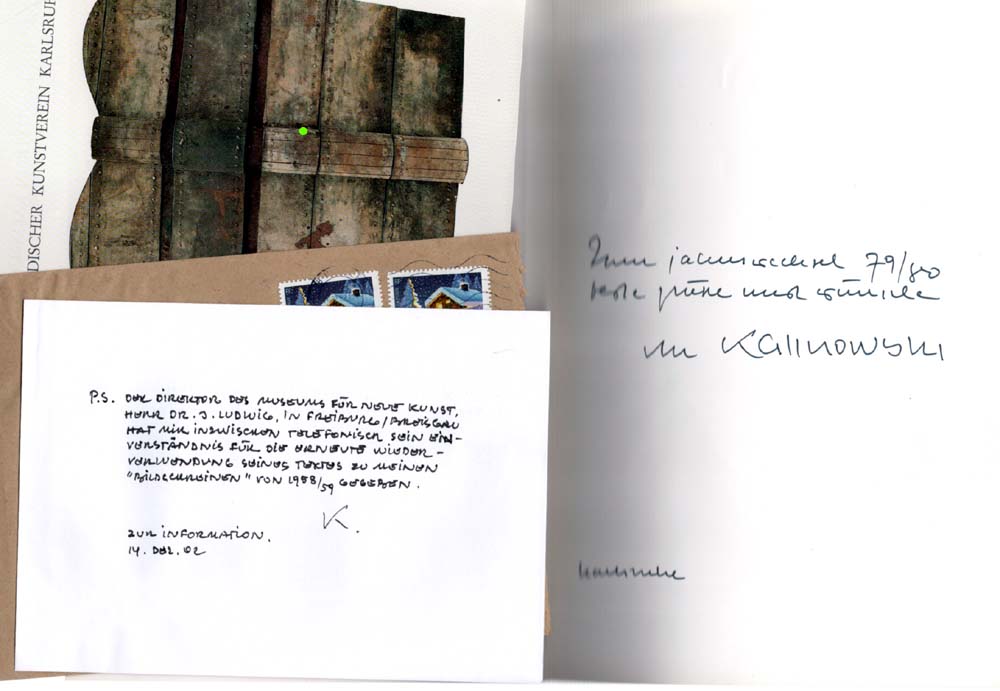 DISCHER KUNSTVEREIN KARLSRUH
P.S. DER DIREKTOR DES MUSEUMS FÜR NEUE KUNST,
HERR DR. J. LUDWIG, IN FREIBURG/BREISGAU
HAT MIR INZWISCHEN TELEFONISCH SEIN EIN-
VERSTÄNDNIS FÜR DIE ERNEUTE WIEDER-
VERWENDUNG SEINES TEXTES ZU MEINEN
"BILDSCHREINEN" VON 1958/59 GEGEBEN.
K.
ZUR INFORMATION.
14. DEZ. 02
Zum jahreswechsel 79/80
beste grüße und wünsche
KALINOWSKI
karlsruhe